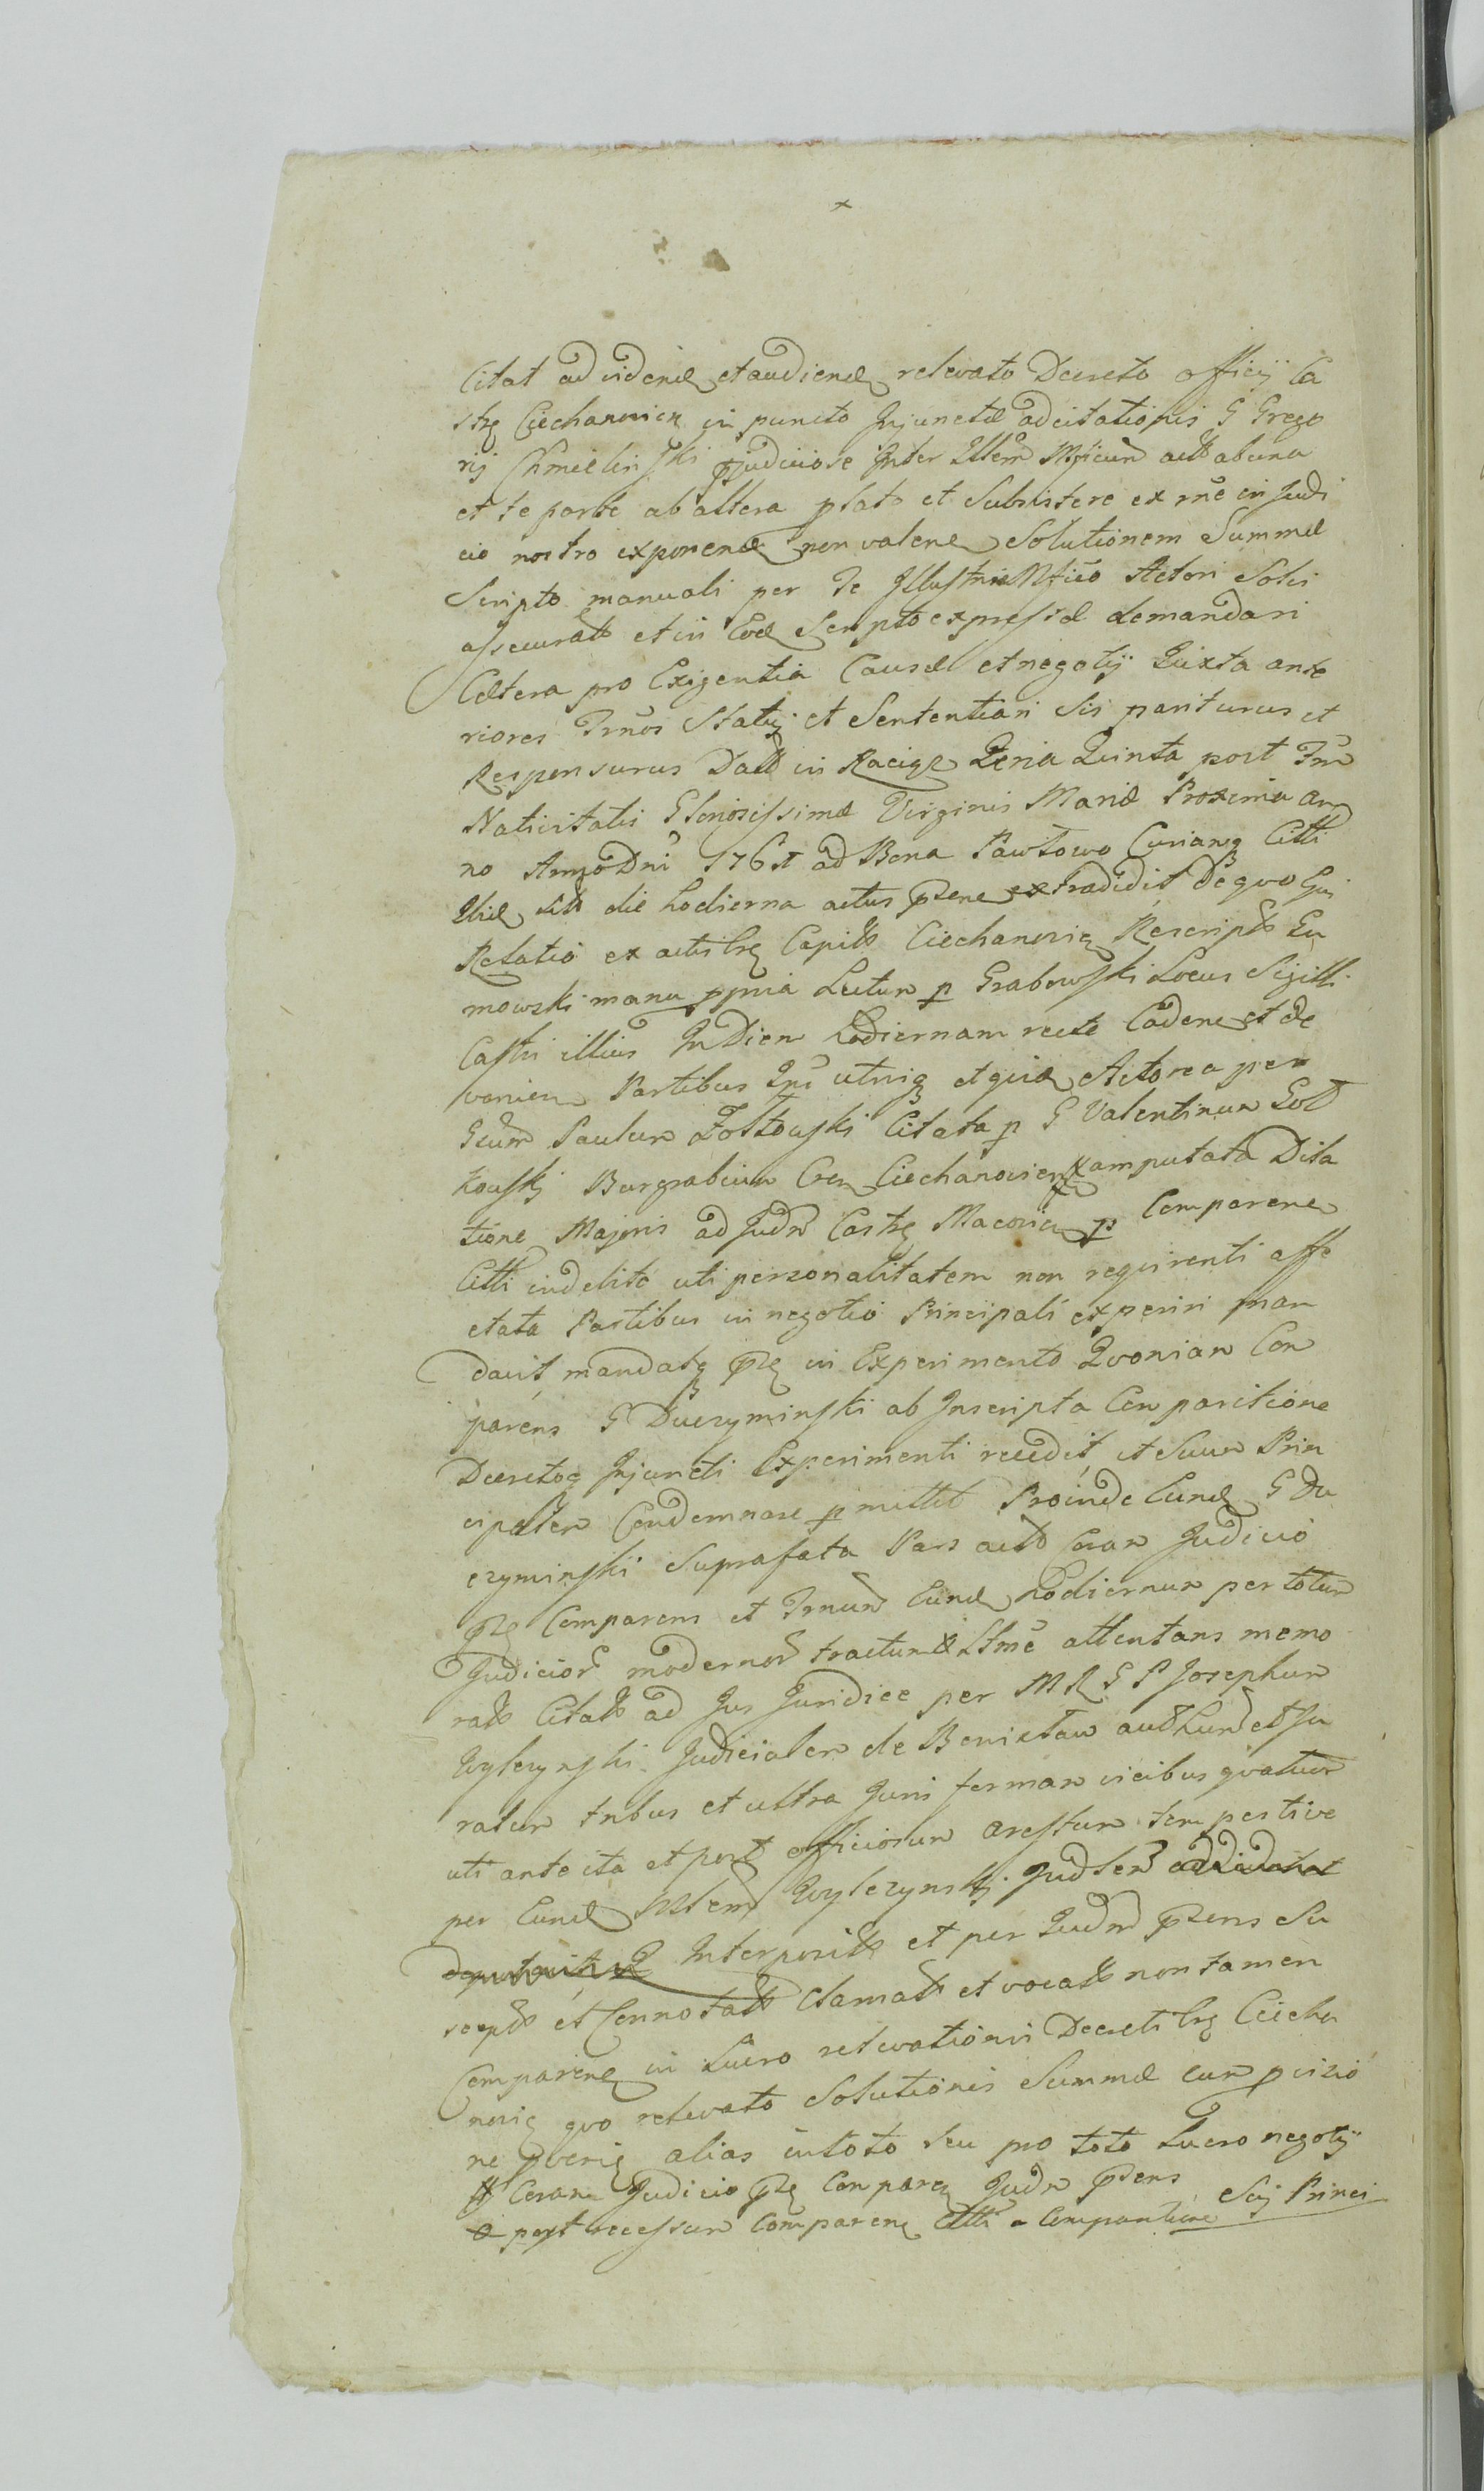 Citat ad videnđ et audienđ relevato Decreto officij Ca
strę Ciechanovieñ in puncto Injunctæ adcitationis G Grego
rij Chmielinski pjudiciose Inter Illem Mficum actt ab una
et te parte ab altera plato et Subsistere ex rñe in Judi
cio nostro exponenđ non valenđ Solutionem Summæ
Scripto manuali per Te Illustris Mfico Actori Solvi
assecuratt et in Eođ Scripto expressæ demandari
Cætera pro Exigentia Causæ et negotij Juxta ante
riores Trnos Statuj et Sententiari Sis pariturus et
Responsurus Datt in Raciąż Feria Quinta post Fm
Nativitatis Gloriosissimæ Virginis Mariæ Proxima an
no Anno Dni ad Bona Pawłowo Curiamq Citti
Ibiđ sitt die hodierna actus psens extradidit de quo Ejus
Relatio ex actis Crę Capitt Ciechanovię Rescriptt
mowski manu ppria Lectum p Grabowski Locus Sigilli
Castri illius In Diem hodiernam recte Cadeñ et de
venieñ Partibus Ipis utrisq et quiđ Actorea per
Gsum Paulum Zołtowski Citata p G Valentinum Goł
kowskj Burgrabium Cręn Ciechanovieñ amputata Dila
tione Majoris ad Judm Castrę Macovieñ p Comparenę
Citti indebite uti personalitatem non requirenti affe
ctata Partibus in negotio Principali experiri man
davit, mandatq pse in Experimento Quoniam Com
parens G Duczyminski ab Inscripta Comparitione
Decretoq Injuncti Experimenti recedit, et Suum Prin
cipalem Condemnare pmittit Proinde Eunđ G Du
czyminski Suprafata Pars actt Coram Judicio
pse Comparens et Trnum Eunđ hodiernum per totum
Judicior modernor tractum Ltme attentans memo
ratt Citatt ad Jus Juridice per M R G P Josephum
Wylezynski Judicialem de Benixtaw authum et Ju
ratum tribus et ultra Juris formam vicibus quatuor
uti ante ita et post officiosum arestum tempestive
per Eunđ Mtem Wylezynskj Judlem
Interpositt et per Judm psens Su
sceptt et Connotatt Clamatt et vocatt non tamen
Comparenđ in Lucro relevationis Decreti Crę Ciecha
novię quo relevato Solutionis Summæ cum pvisio
ne pverię alias in toto seu pro toto Lucro negotij
Coram Judicio pse Comparę Judm psens
post recessum Comparenę Citti a Comparitione Sui Princi